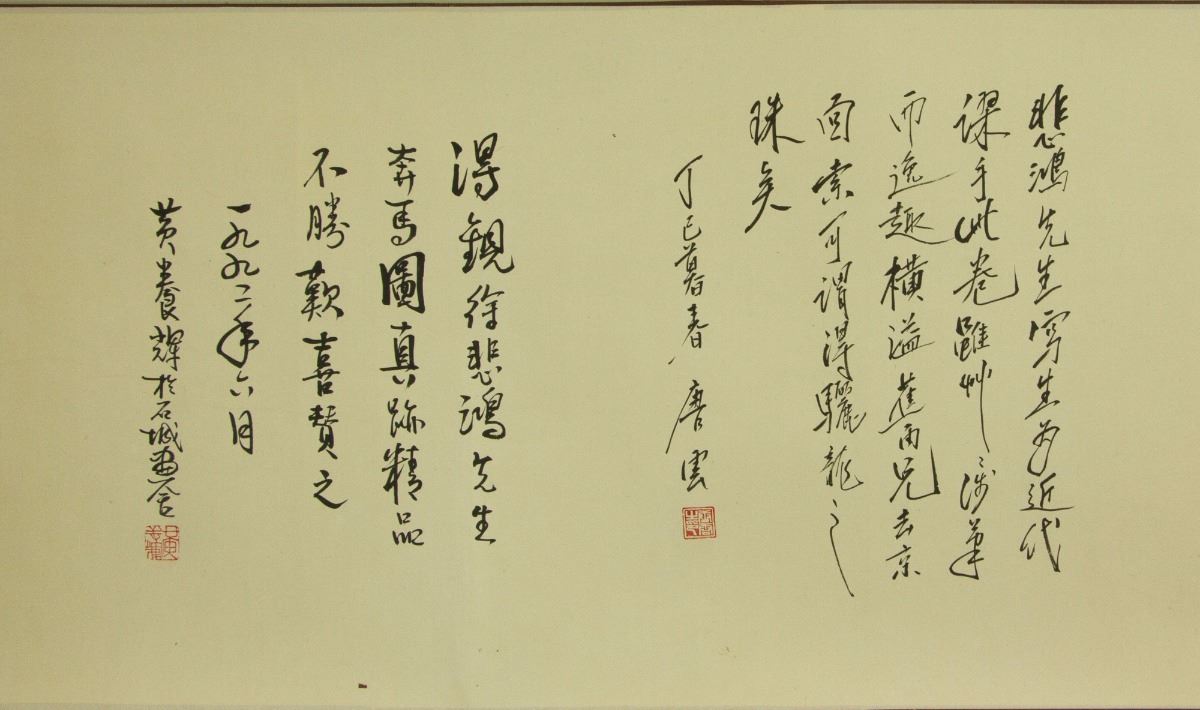 悲鴻先生寫生为近代
手此卷雖艸〻涉筆
而逸趣橫溢蕉雨兄去京
面索可謂得驪龍之
珠矣
丁巳暮春 唐雲
得觀徐悲鴻先生
奔馬圖真跡精品
不勝歡喜贊之
一九九二年六月
黄養輝於石城畫舍